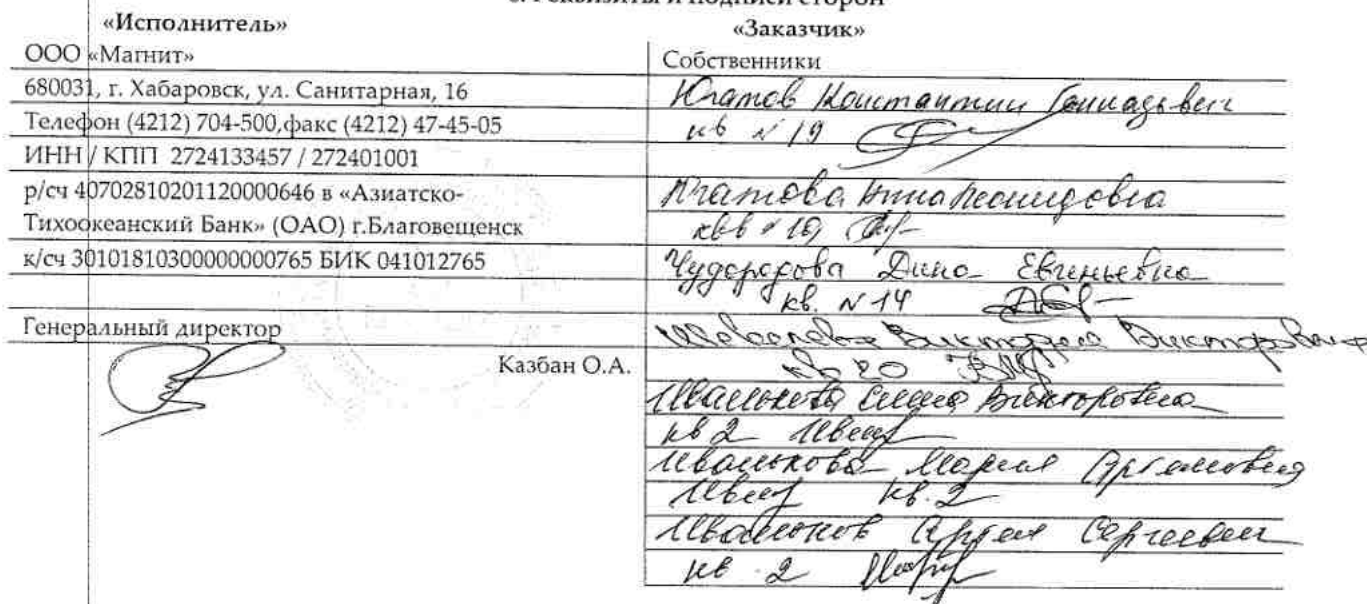 реквизиты и подписи сторон
«Исполнитель»
«Заказчик»
ООО «Магнит»
680031, г. Хабаровск, ул. Санитарная, 16
Телефон (4212) 704-500,факс (4212) 47-45-05
ИНН / КПП 2724133457 / 272401001
р/сч 40702810201120000646 в «Азиатско-
Тихоокеанский Банк» (ОАО) г.Благовещенск
к/сч 30101810300000000765 БИК 041012765
Генеральный директор
Казбан О.А.
Собственники
Константин Геннадьевич
кв № 19
Леонидовна
Чудородова Дина Евгеньевна
кв. № 14
Виктория Викторовна
кв 20
Иванькова Елена Викторовна
кв 2
Иванькова Мария Артемовна
кв. 2
Иваньков Артем Сергеевич
кв 2